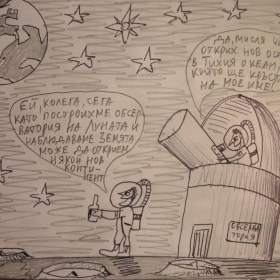 ЕЙ, КОЛЕГА, СЕГА
КАТО ПОСТРОИХМЕ ОБСЕР-
ВАТОРИЯ НА ЛУНАТА И
НАБЛЮДАВАМЕ ЗЕМЯТА
МОЖЕ ДА ОТКРИЕМ
НЯКОЙ НОВ
КОНТИ-
НЕНТ!
ДА, МИСЛЯ ЧЕ
ОТКРИХ НОВ
В ТИХИЯ ОКЕАН,
КОЙТО ЩЕ КРЪСТЯ
НА МОЕ ИМЕ!
ОБСЕРВА
ТОРИЯ